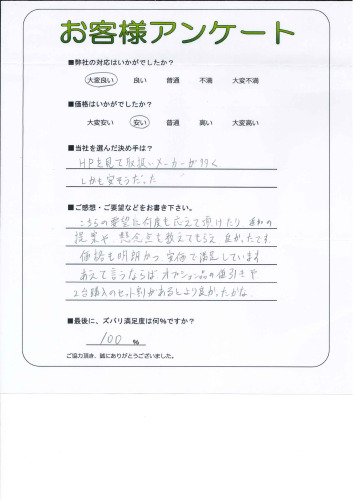 お客様アンケート
■弊社の対応はいかがでしたか?
大変良い 良い 普通 不満 大変不満
■価格はいかがでしたか?
大変安い 安い 普通 高い 大変高い
■当社を選んだ決め手は?
HPを見て取扱いメーカーが多く
しかも安そうだった
■ご感想・ご要望などをお書き下さい。
こちらの要望に何度も応えて頂けたり
提案や 懸念点も教えてもらえ 良かったです
価格も明朗かつ安価で満足しています
あえて言うならば オプション品の値引きや
2台購入のセット割があるとより良かったかな
■最後に、ズバリ満足度は何%ですか?
100 %
ご協力頂き、誠にありがとうございました。